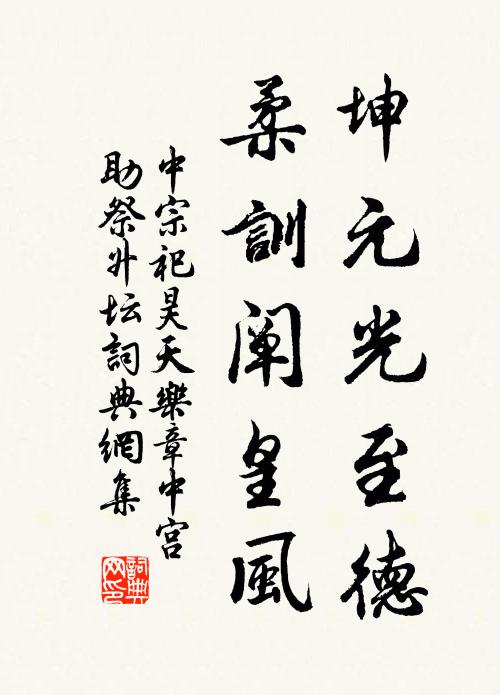 坤元光至德
柔訓阐皇風
中宗祀昊天樂章中宮
助祭升坛詞典網集
詞典网印